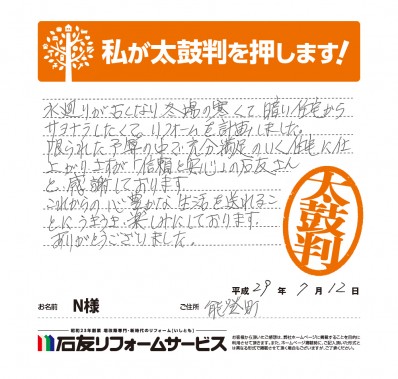 私が太鼓判を押します!
水廻りが古くなり冬場の寒くて暗い住宅から
サヨナラしたくてリフォームを計画しました。
限られた予算の中で充分満足のいく住宅に仕
上がりさすが「信頼と安心」の石友さん
と、感謝しております。
これからの心豊かな生活を送れるこ
とにうきうき、楽しみにしております。
ありがとうございました。
太鼓判
平成 29 年 7 月 12 日
お名前 N様 ご住所 能登町
昭和23年創業 増改築専門・新時代のリフォーム[いしとも]
石友リフォームサービス
お客様から頂いたご感想は、弊社ホームページに掲載することを目的に